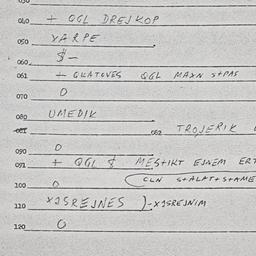 040 + QGL DREJKOP
050 YARPE
060 $-
061 + GLATOVES QGL MAXN S+PAS
070 O
080 UMEDIK
081 082 TROJERIK
090 O
091 + QGL $ MESTIKT EJNEM ERT
100 O CLN S+ALAT+S+AME
110 X2SREJNES )-X2SREJNIM
120 O